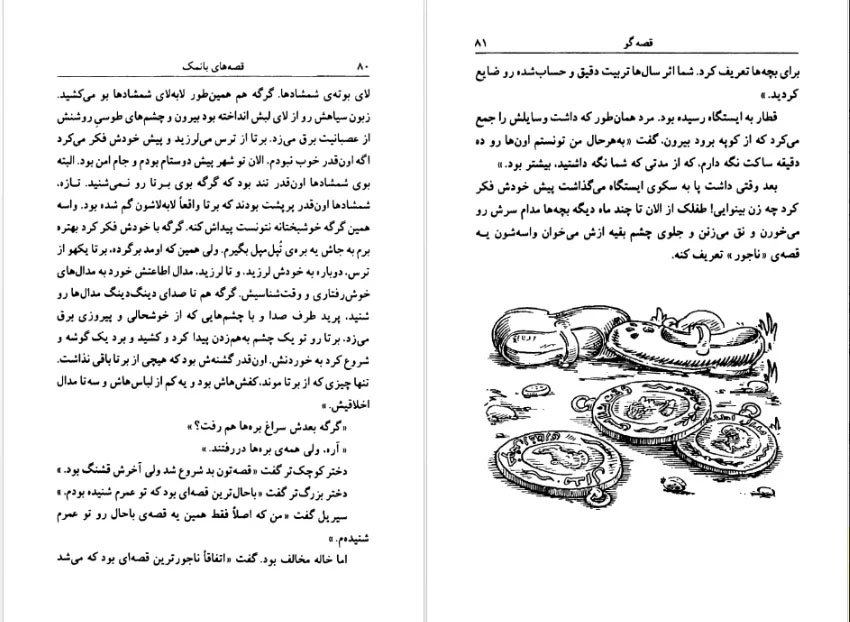 ۸۰ قصه‌های بانمک
لای بوته‌ی شمشادها. گرگه هم همین‌طور لابه‌لای شمشادها بو می‌کشید.
زبون سیاهش رو از لای لبش انداخته بود بیرون و چشم‌های طوسیِ روشنش
از عصبانیت برق می‌زد. برتا از ترس می‌لرزید و پیش خودش فکر می‌کرد
اگه اون‌قدر خوب نبودم، الان تو شهر پیش دوستام بودم و جام امن بود. البته
بوی شمشادها اون‌قدر تند بود که گرگه بوی برتا رو نمی‌شنید. تازه،
شمشادها اون‌قدر پرپشت بودند که برتا واقعاً لابه‌لاشون گم شده بود. واسه
همین گرگه خوشبختانه نتونست پیداش کنه. گرگه با خودش فکر کرد بهتره
برم به جاش یه بره‌ی تُپل‌مپل بگیرم. ولی همین که اومد برگرده، برتا یکهو از
ترس، دوباره به خودش لرزید. و تا لرزید، مدال اطاعتش خورد به مدال‌های
خوش‌رفتاری و وقت‌شناسیش. گرگه هم تا صدای دینگ‌دینگ مدال‌ها رو
شنید، پرید طرف صدا و با چشم‌هایی که از خوشحالی و پیروزی برق
می‌زد، برتا رو تو یک چشم به‌هم‌زدن پیدا کرد و کشید و برد یک گوشه و
شروع کرد به خوردنش. اون‌قدر گشنه‌ش بود که هیچی از برتا باقی نذاشت.
تنها چیزی که از برتا موند، کفش‌هاش بود و یه کم از لباس‌هاش و سه‌تا مدال
اخلاقیش. »
«گرگه بعدش سراغ بره‌ها هم رفت؟ »
« آره. ولی همه‌ی بره‌ها دررفتند. »
دختر کوچک‌تر گفت «قصه‌تون بد شروع شد ولی آخرش قشنگ بود. »
دختر بزرگ‌تر گفت «باحال‌ترین قصه‌ای بود که تو عمرم شنیده بودم. »
سیریل گفت «من که اصلاً فقط همین یه قصه‌ی باحال رو تو عمرم
شنیده‌م. »
اما خاله مخالف بود. گفت «اتفاقاً ناجورترین قصه‌ای بود که می‌شد
قصه‌گو ۸۱
برای بچه‌ها تعریف کرد. شما اثر سال‌ها تربیت دقیق و حساب‌شده رو ضایع
کردید. »
قطار به ایستگاه رسیده بود. مرد همان‌طور که داشت وسایلش را جمع
می‌کرد که از کوپه برود بیرون، گفت «به‌هرحال من تونستم اون‌ها رو ده
دقیقه ساکت نگه دارم، که از مدتی که شما نگه داشتید، بیشتر بود. »
بعد وقتی داشت پا به سکوی ایستگاه می‌گذاشت پیش خودش فکر
کرد چه زن بینوایی! طفلک از الان تا چند ماه دیگه بچه‌ها مدام سرش رو
می‌خورن و نق می‌زنن و جلوی چشم بقیه ازش می‌خوان واسه‌شون یه
قصه‌ی «ناجور» تعریف کنه.